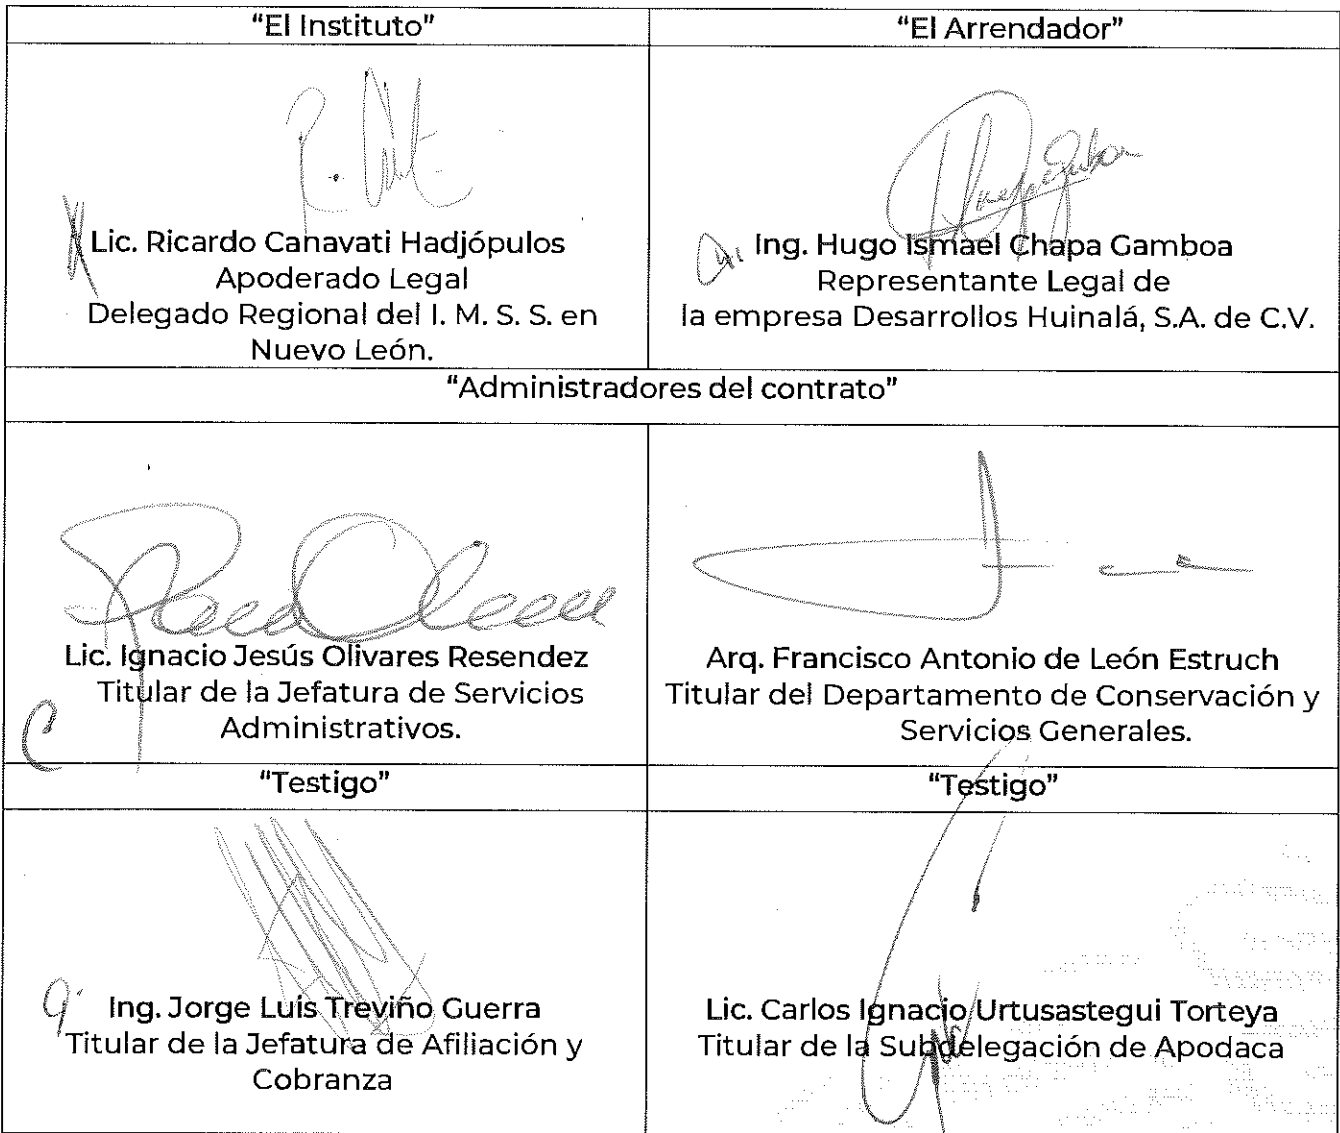 “El Instituto”
“El Arrendador”
Lic. Ricardo Canavati Hadjópulos
Apoderado Legal
Delegado Regional del I. M. S. S. en
Nuevo León.
Ing. Hugo Ismael Chapa Gamboa
Representante Legal de
la empresa Desarrollos Huinalá, S.A. de C.V.
“Administradores del contrato”
Lic. Ignacio Jesús Olivares Resendez
Titular de la Jefatura de Servicios
Administrativos.
Arq. Francisco Antonio de León Estruch
Titular del Departamento de Conservación y
Servicios Generales.
“Testigo”
“Testigo”
Ing. Jorge Luis Treviño Guerra
Titular de la Jefatura de Afiliación y
Cobranza
Lic. Carlos Ignacio Urtusastegui Torteya
Titular de la Subdelegación de Apodaca